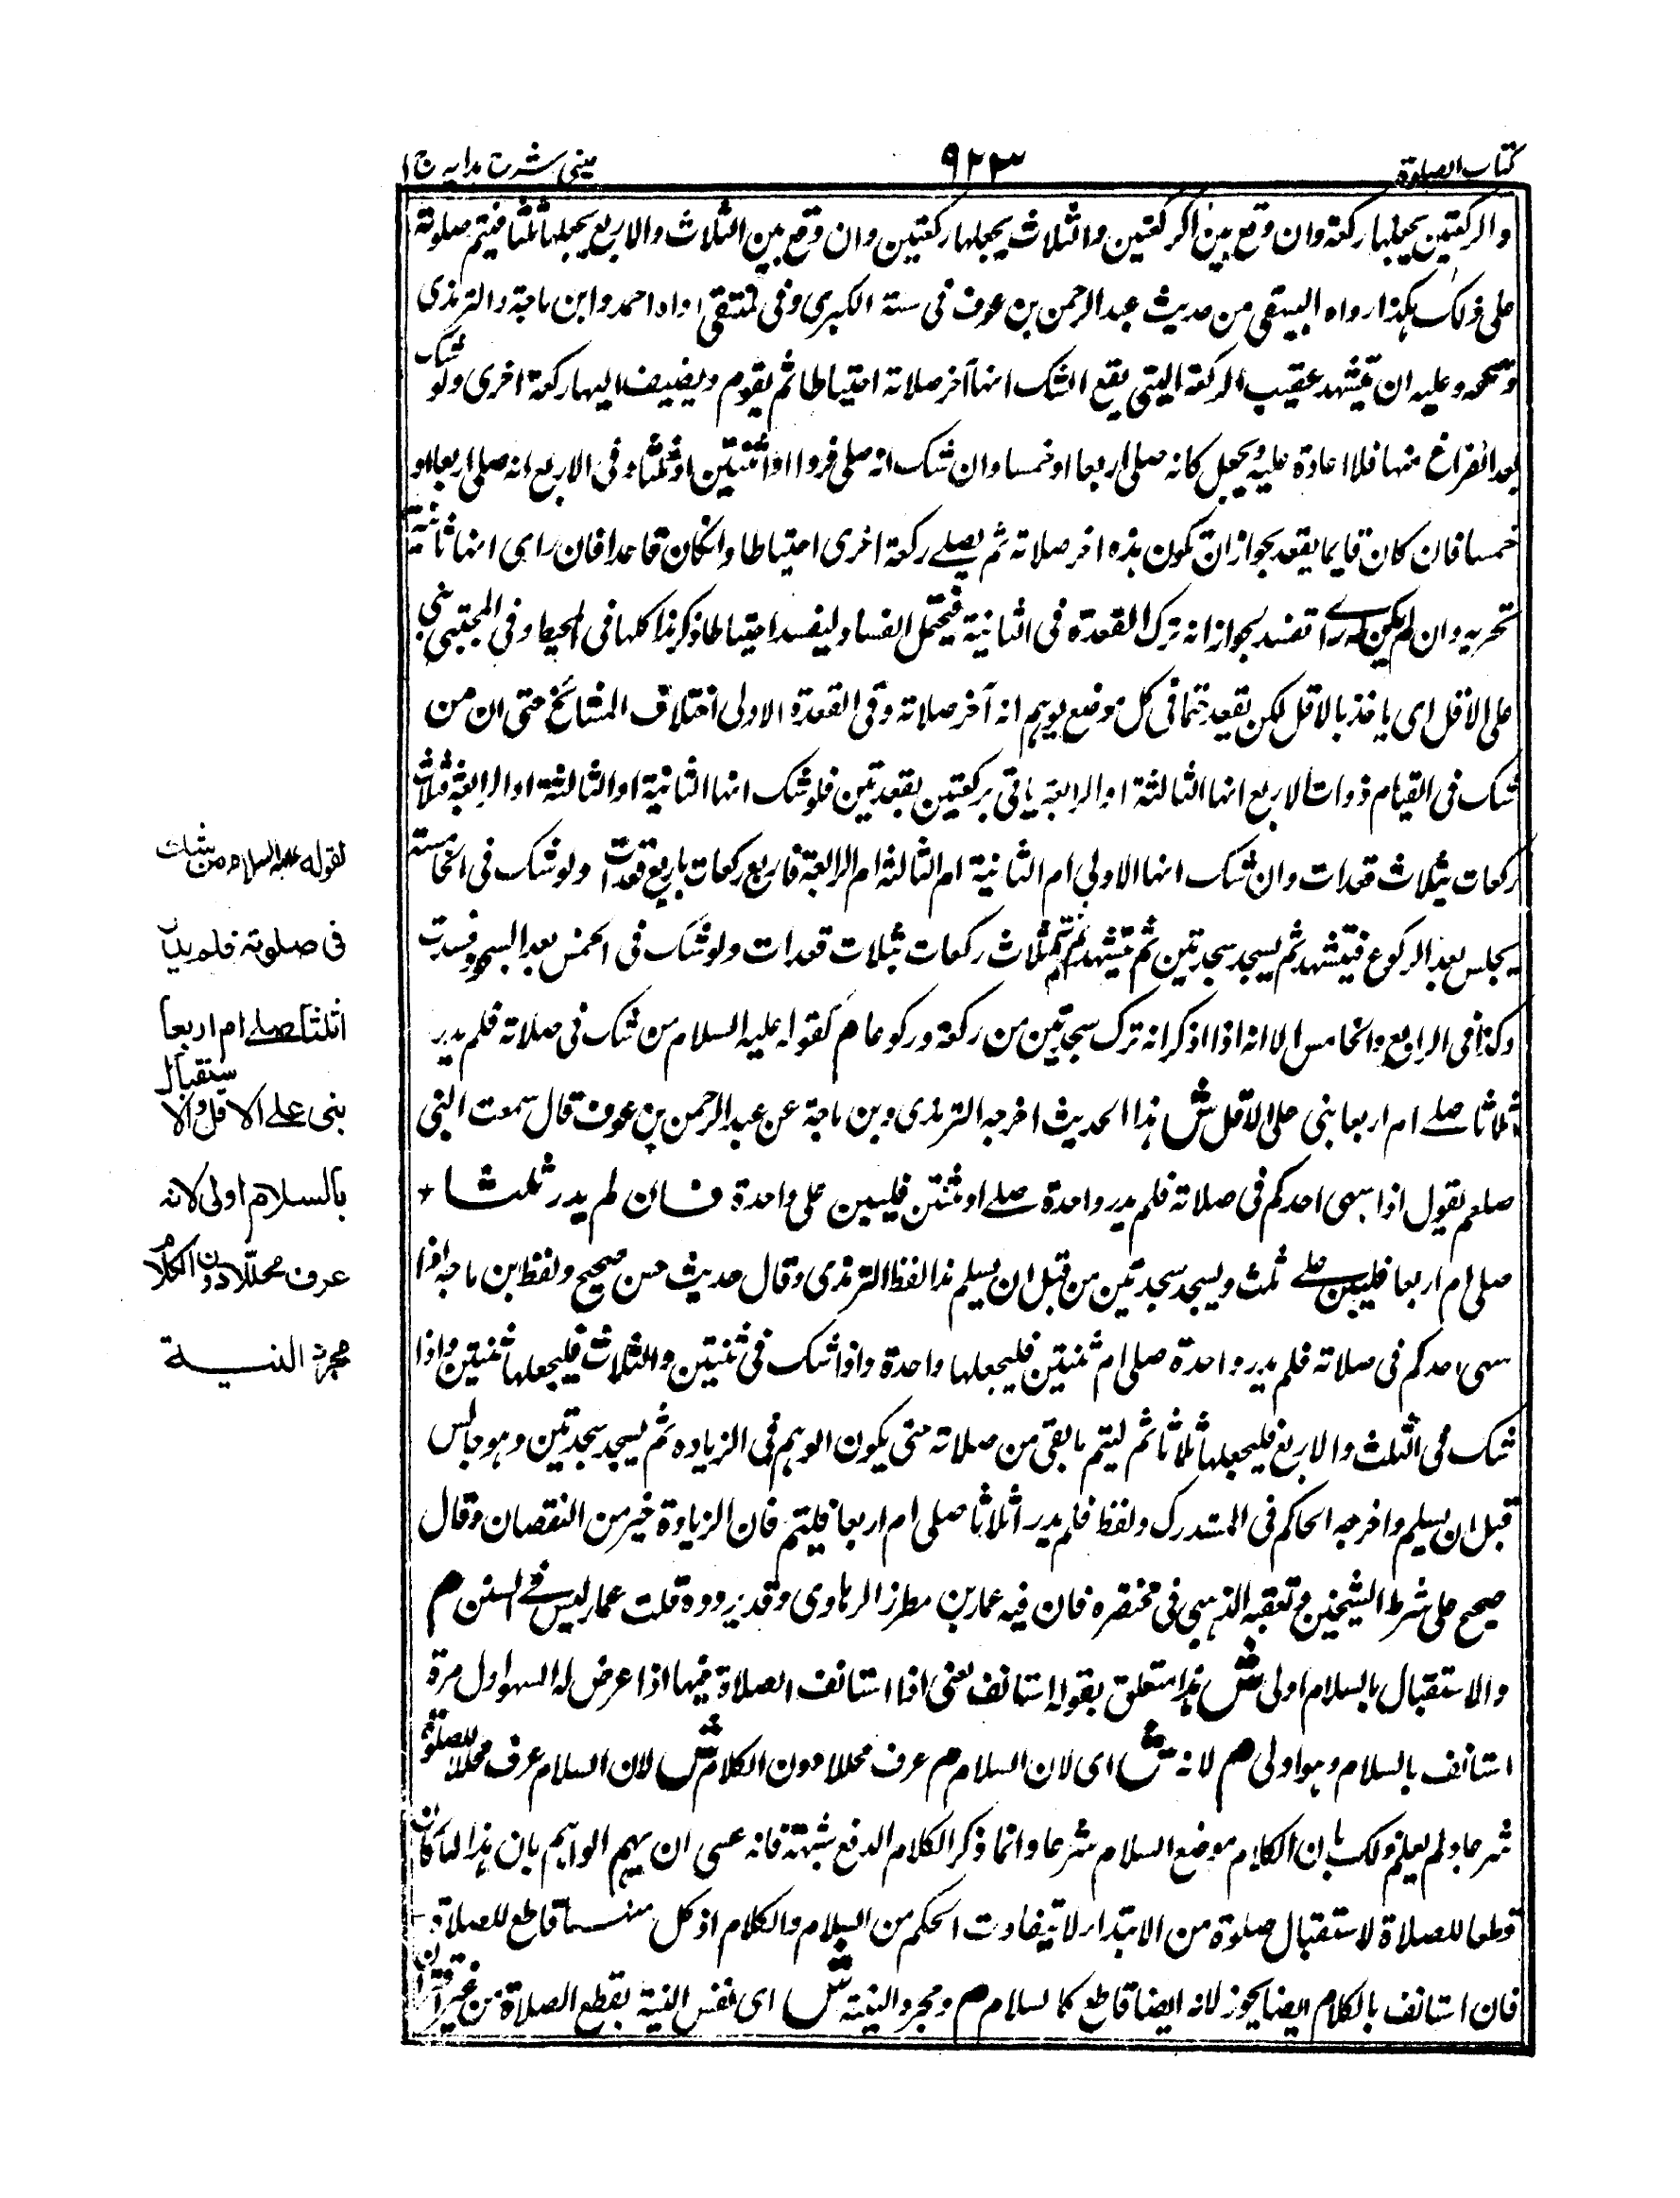 كتاب الصلوة ٩٢٣ عينى شرح هدايه ج ١
والركعتين يجعلها ركعة وان وقع بين الركعتين والثلاث يجعلها ركعتين وان وقع بين الثلاث والاربع يجعلها ثلثا فيتم صلوته
على ذلك هكذا رواه البيهقى من حديث عبد الرحمن بن عوف فى سننه الكبرى وفى المنتقى رواه احمد وابن ماجة والترمذى
وصححه وعليه ان يتشهد عقيب الركعة التى يقع الشك انها آخر صلاته احتياطا ثم يقوم ويضيف اليها ركعة اخرى ولو شك
بعد الفراغ منها فلا اعادة عليه ويجعل كانه صلى اربعا او خمسا وان شك انه صلى فردا او اثنتين او ثلثا وفى الاربع انه صلى اربعا او
خمسا فان كان قايما يقعد بجواز ان تكون هذه اخر صلاته ثم يصلے ركعة اخرى احتياطا وانكان قاعدا فان راى انها ثانية
تحريه وان لم يكن له راے تفسد بجواز انه ترك القعدة فى الثانية فيحتمل الفساد ليفسد احتياطا ذكر هذا كلها فى المحيط وفى المجتبى بنى
على الاقل اى ياخذ بالاقل لكن يقعد حتما فى كل موضع يوهم انه آخر صلاته وفى القعدة الاولى اختلاف المشائخ حتى ان من
شك فى القيام ذوات الاربع انها الثالثة او الرابعة ياتى بركعتين بقعدتين فلو شك انها الثانية او الثالثة او الرابعة فثلاث
ركعات بثلاث قعدات وان شك انها الاولى ام الثانية ام الثالثة ام الرابعة فاربع ركعات باربع قعدات ولو شك فى الخامسة
يجلس بعد الركوع فيتشهد ثم يسجد سجدتين ثم يتشهد ثم يتم ثلاث ركعات بثلاث قعدات ولو شك فى الخمس بعد السجود فسدت
وكذا فى الرابع والخامس الا انه اذا اذكر انه ترك سجدتين من ركعة وركوعا م لقوله عليه السلام من شك فى صلاته فلم يدر
أثلاثا صلے ام اربعا بنى على الاقل ش هذا الحديث اخرجه الترمذى وبن ماجة عن عبد الرحمن بن عوف قال سمعت النبى
صلعم يقول اذا سهى احدكم فى صلاته فلم يدر واحدة صلے او ثنتين فليبن على واحدة فان لم يدر ثلثا *
صلى ام اربعا فليبن علے ثلث ويسجد سجدتين من قبل ان يسلم هذا لفظ الترمذى وقال حديث حسن صحيح ولفظ بن ماجه اذا
سهى احدكم فى صلاته فلم يدر واحدة صلى ام ثنتين فليجعلها واحدة واذا شك فى ثنتين والثلاث فليجعلها ثنتين واذا
شك فى الثلث والاربع فليجعلها ثلاثا ثم ليتم ما بقى من صلاته حتى يكون الوهم فى الزياده ثم يسجد سجدتين وهو جالس
قبل ان يسلم واخرجه الحاكم فى المستدرك ولفظ فلم يدر أثلاثا صلى ام اربعا فليتم فان الزيادة خير من النقصان وقال
صحيح على شرط الشيخين وتعقبه الذهبى فى مختصره فان فيه عمار بن مطر الرهاوى وقد يردوه قلت عمار ليس فے السنن م
والاستقبال بالسلام اولى ش هذا متعلق بقوله استانف يعنى اذا استانف الصلاة فيها اذا عرض له السهو اول مرة
استانف بالسلام وهو اولى م لانه ش اى لان السلام م عرف محللا دون الكلام ش لان السلام عرف محللا للصلوة
شرعا ولم يعلم ذلك بان الكلام موضع السلام شرعا وانما ذكر الكلام الدفع شبهة فانه عسى ان يهم الواهم بان هذا لما كان
قطعا للصلاة لاستقبال صلوة من الابتداء لا يتفاوت الحكم من السلام والكلام اذ كل منهما قاطع للصلاة
فان استانف بالكلام ايضا يجوز لانه ايضا قاطع كالسلام م ومجرد النية ش اى نفس النية بقطع الصلاة من غير
لقوله عليه السلام من شك
فى صلوته فلم يدر
اثلثا صلے ام اربعا
بنى على الاقل والاستقبال
بالسلام اولى لانه
عرف محللا دون الكلام
مجرد النية